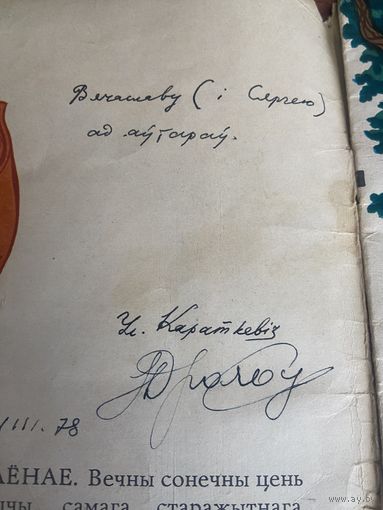 Вячаславу (і Сяргею)
ад аўтараў.
Ул. Караткевіч
III. 78
ЛЁНАЕ. Вечны сонечны цень
самага старажытнага
www.ay.by